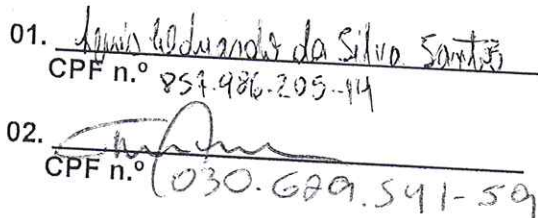 01. Luis Eduardo da Silva Santos
CPF n.º 857.986.205-14
02.
CPF n.º 030.629.541-59